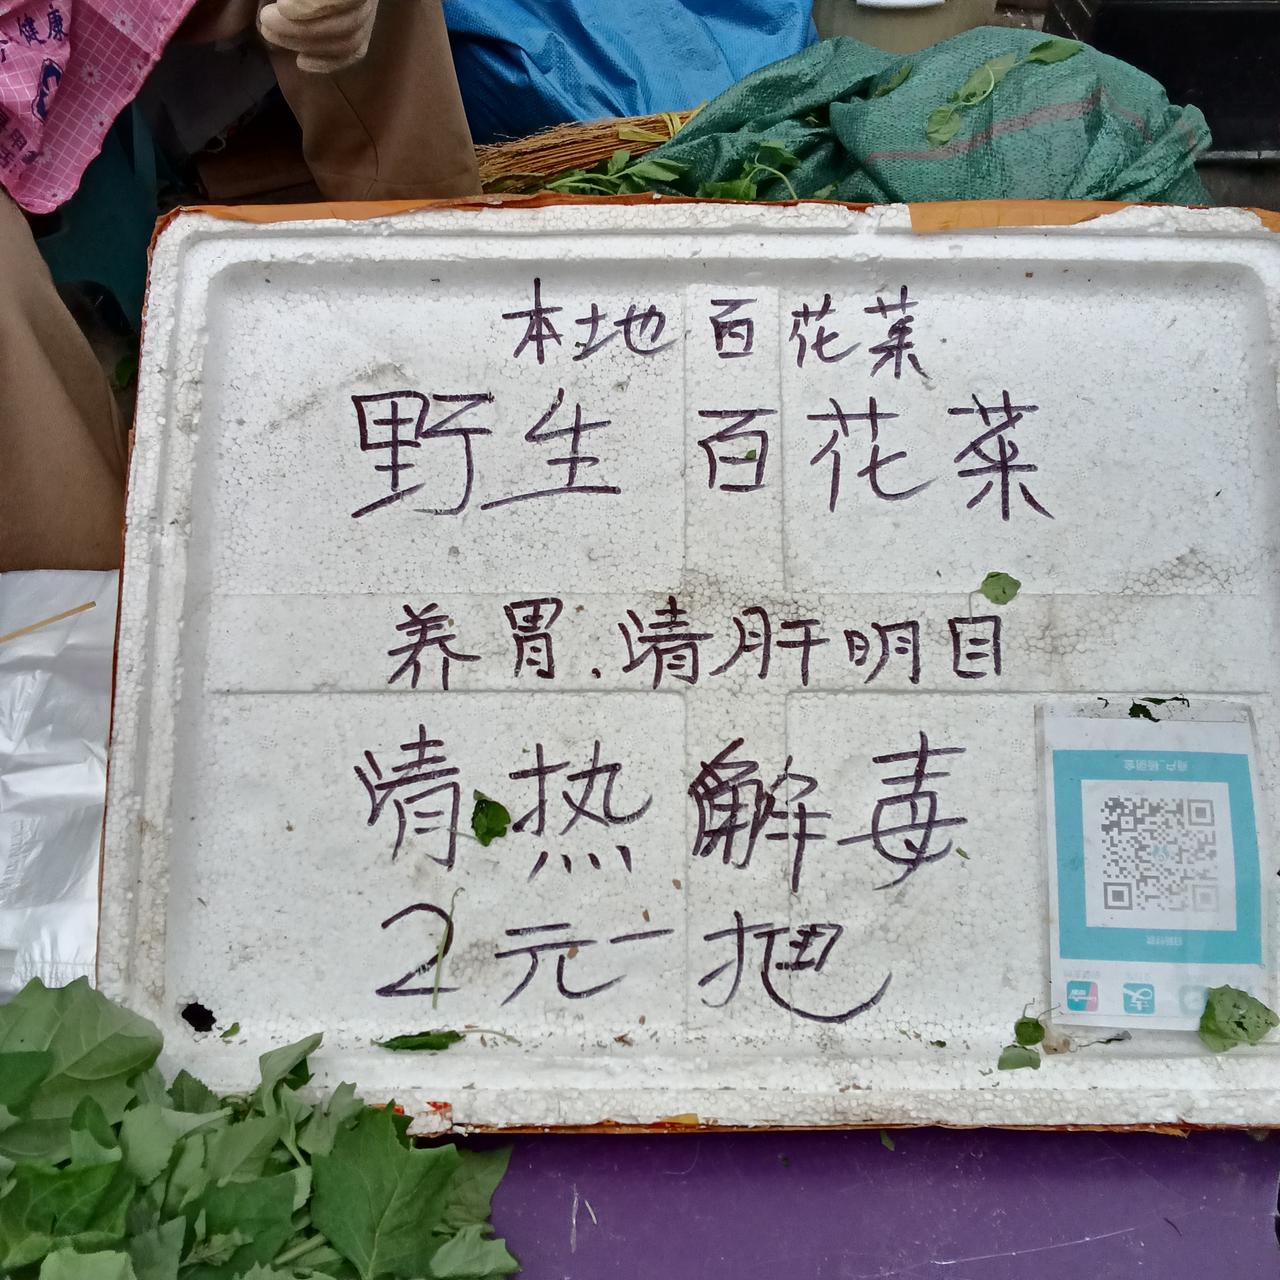 健康
本地百花菜
野生百花菜
养胃.清肝明目
清热解毒
2元一把